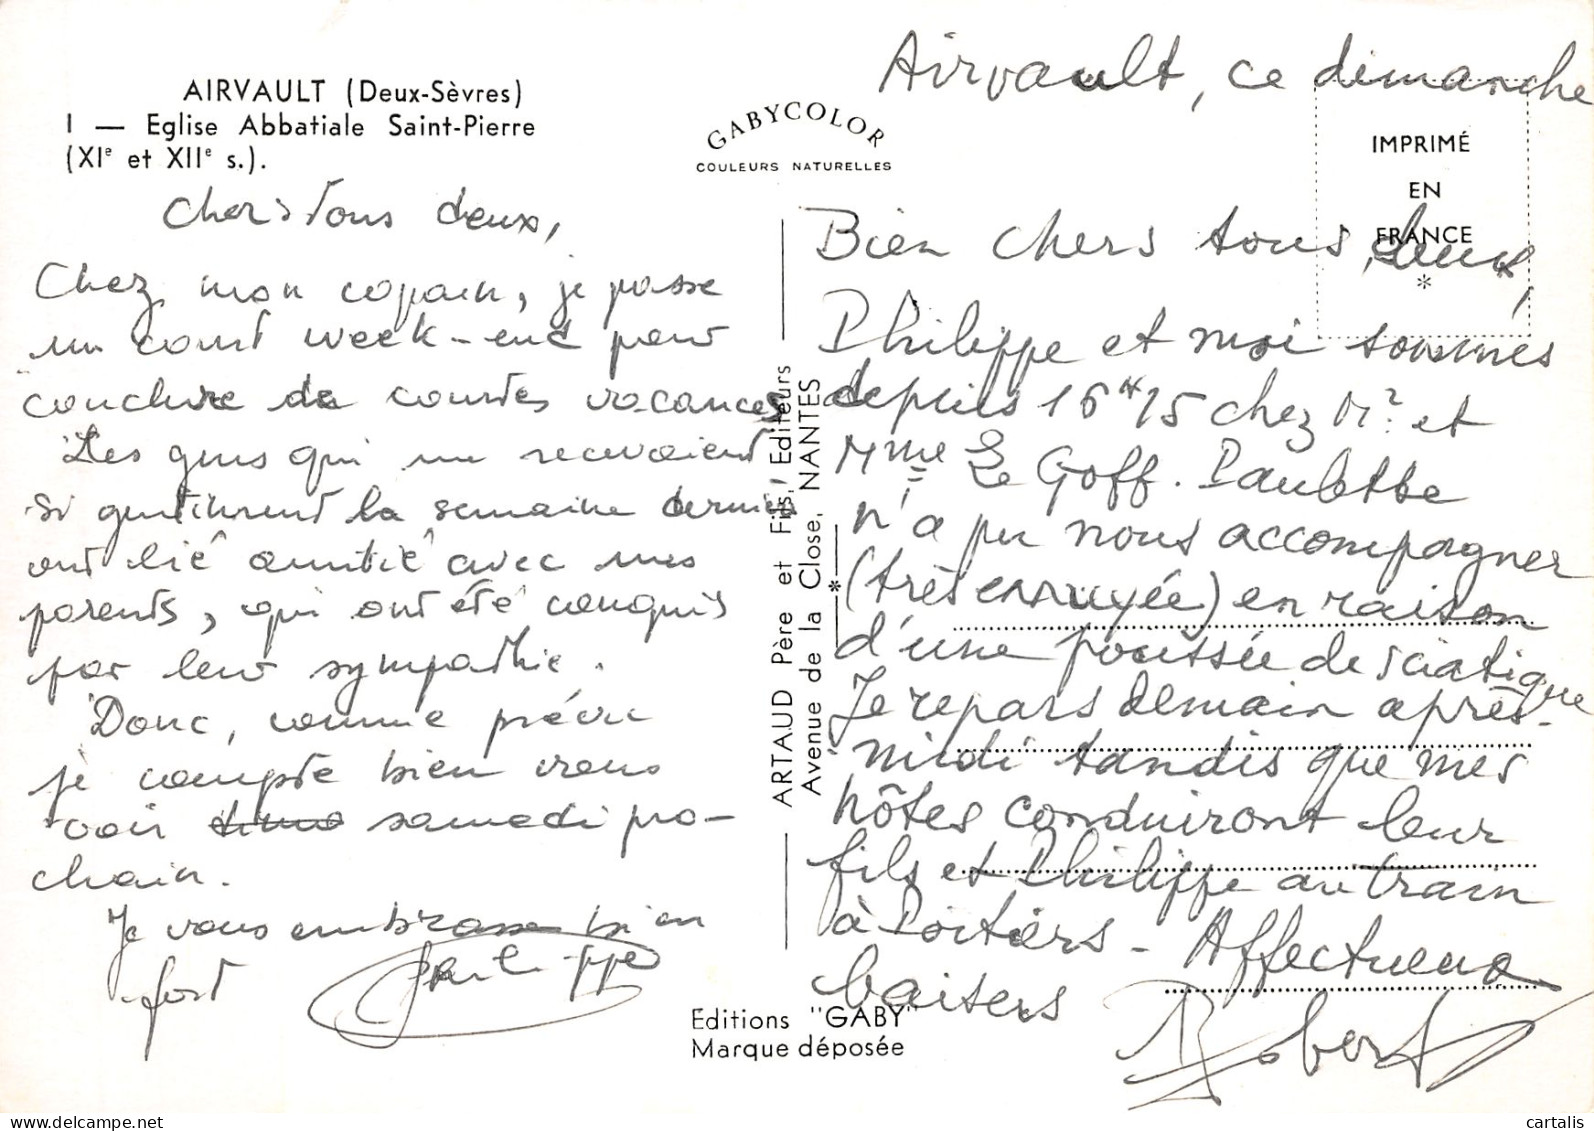 AIRVAULT (Deux-Sèvres)
I — Eglise Abbatiale Saint-Pierre
(XIe et XIIe s.).
Chers Vous deux,
Chez mon copain, je passe
un court week-end pour
conclure de courtes vacances
Les gens qui me recevaient
si gentiment la semaine dernière
ont lié amitié avec mes
parents, qui ont été conquis
par leur sympathie.
Donc, comme prévu
je compte bien vous
voir samedi pro-
chain.
Je vous embrasse bien
fort Philippe
GABYCOLOR
COULEURS NATURELLES
ARTAUD Père et Fils, Editeurs
Avenue de la Close, NANTES
*
Editions "GABY"
Marque déposée
IMPRIMÉ
EN
FRANCE
*
Airvault, ce dimanche
Bien chers tous deux,
Philippe et moi sommes
depuis 16h15 chez Mr et
Mme Le Goff. Paulette
n'a pu nous accompagner
(très ennuyée) en raison
d'une poussée de sciatique
Je repars demain après-
midi tandis que mes
hôtes conduiront leur
fils et Philippe au train
à Poitiers - Affectueux
baisers
Robert
www.cartalis.com
cartalis